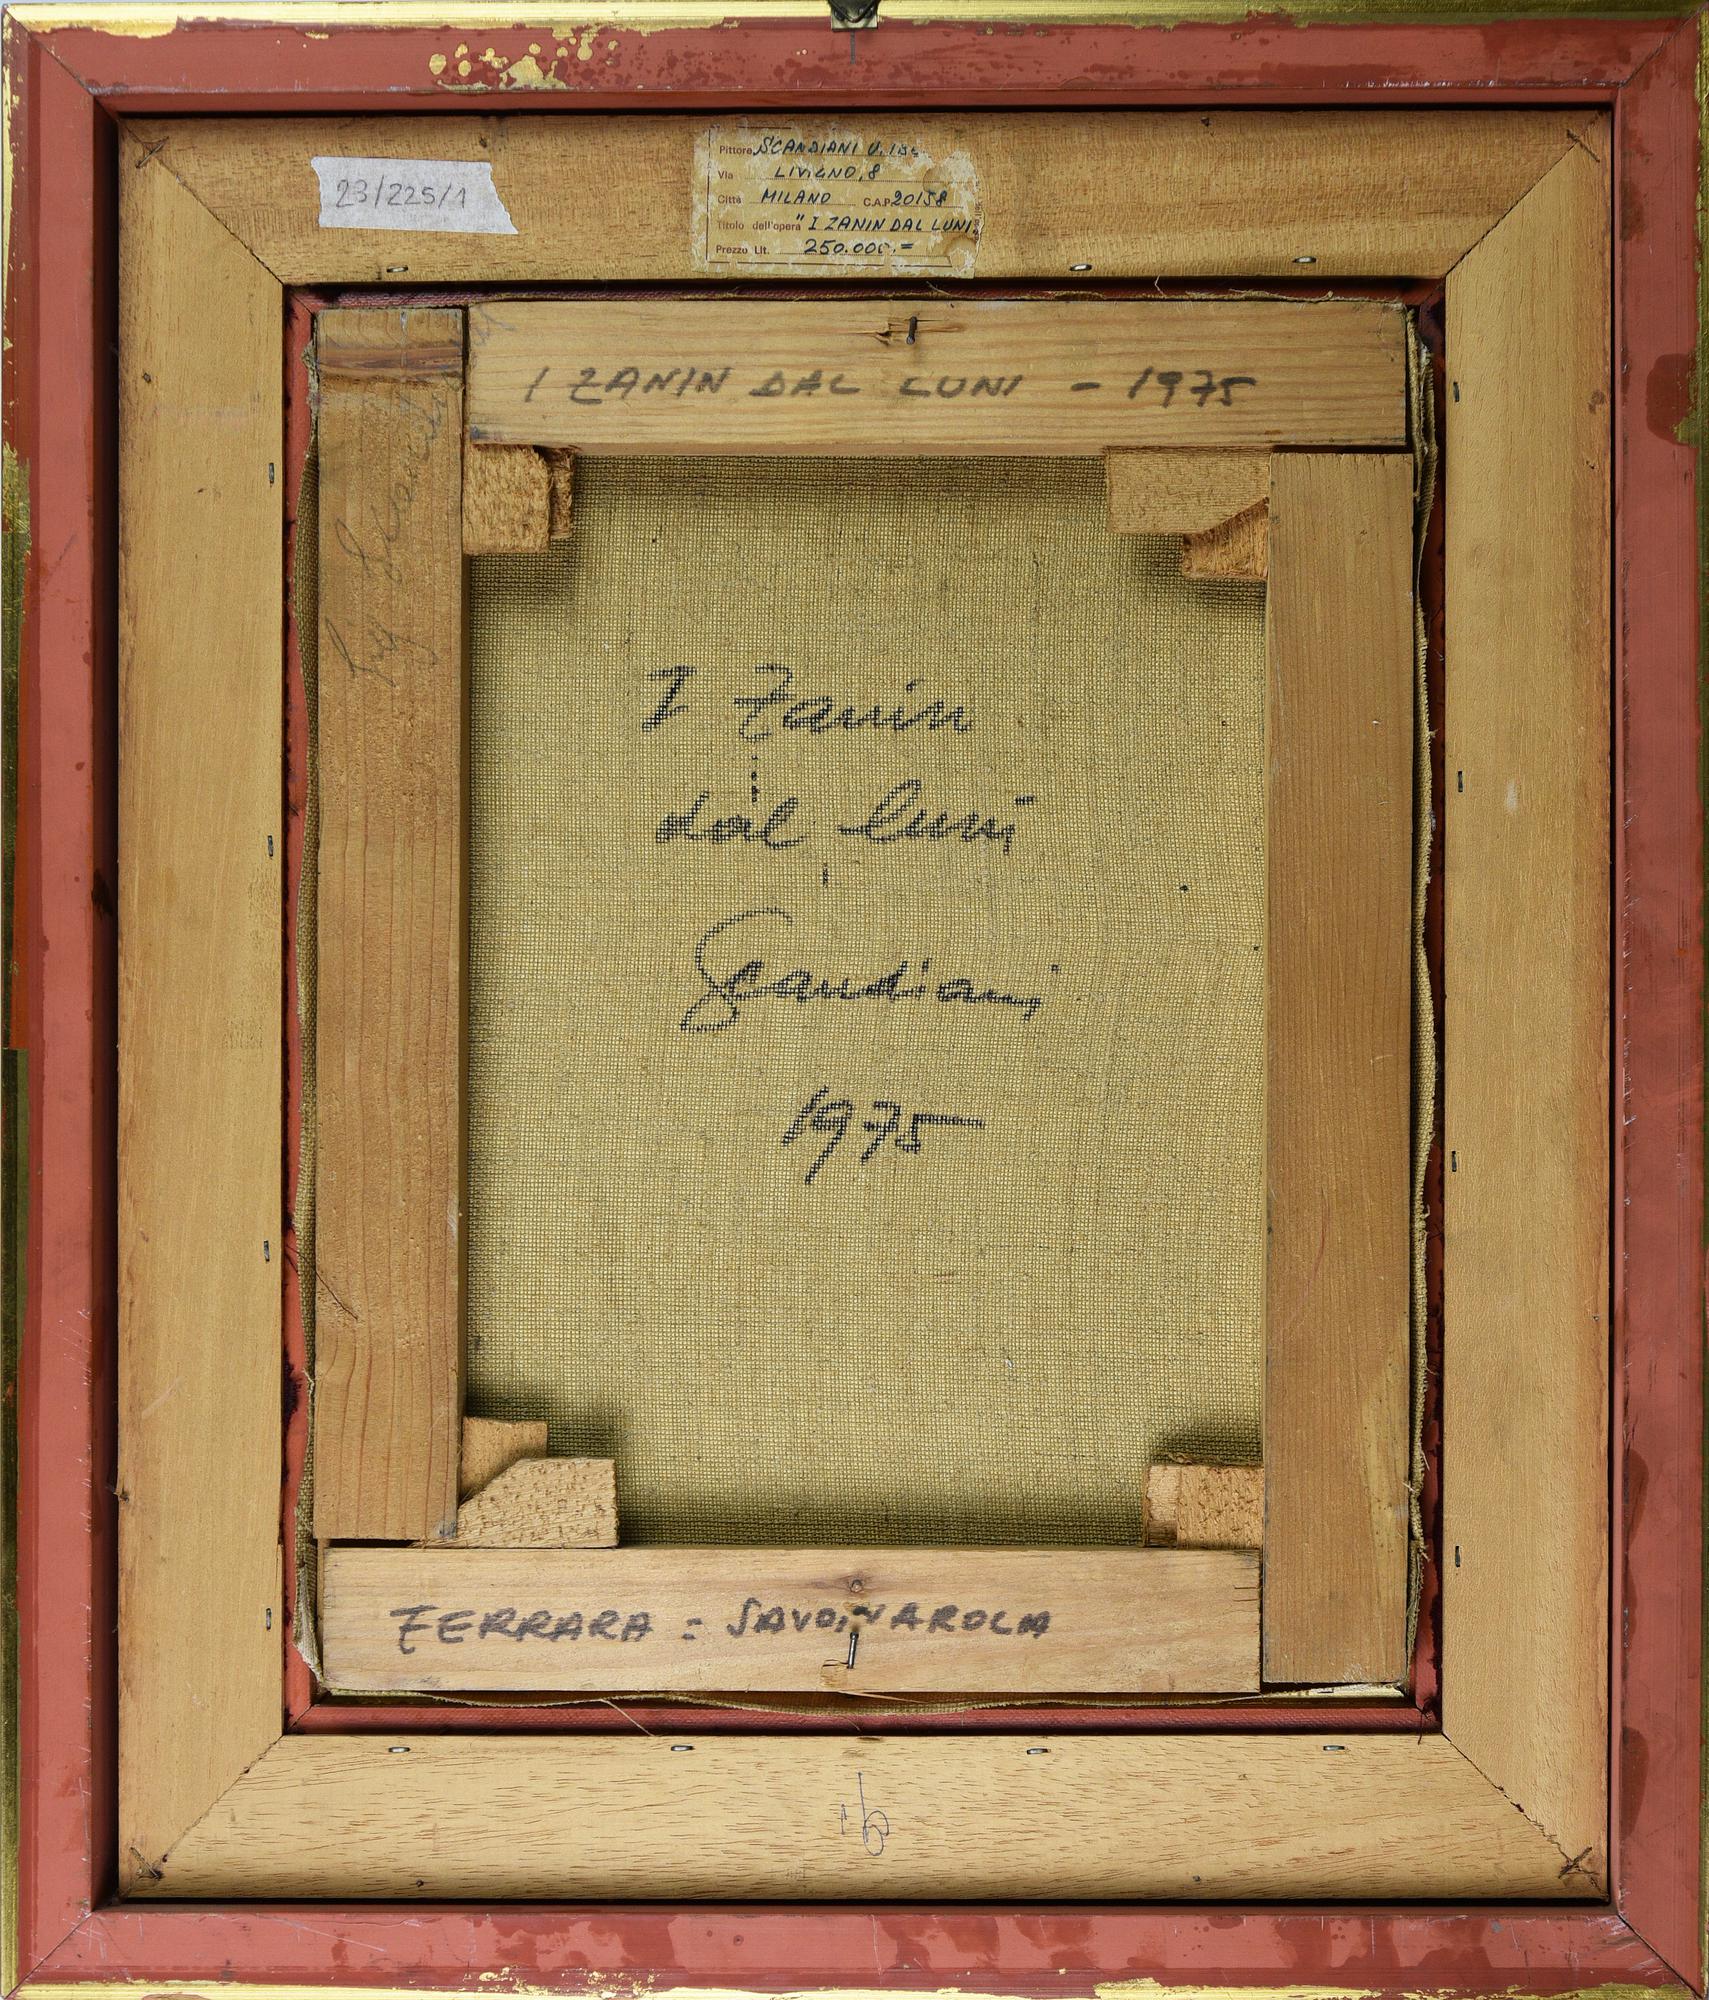 23/225/1
Pittore SCANDIANI U.
Via LIVIGNO, 8
Città MILANO C.A.P. 20158
Titolo dell'opera "I ZANIN DAL LUNI"
Prezzo Lit. 250.000.=
I ZANIN DAL LUNI - 1975
I Zanin
dal luni
Scandiani
1975
FERRARA = SAVONAROLA